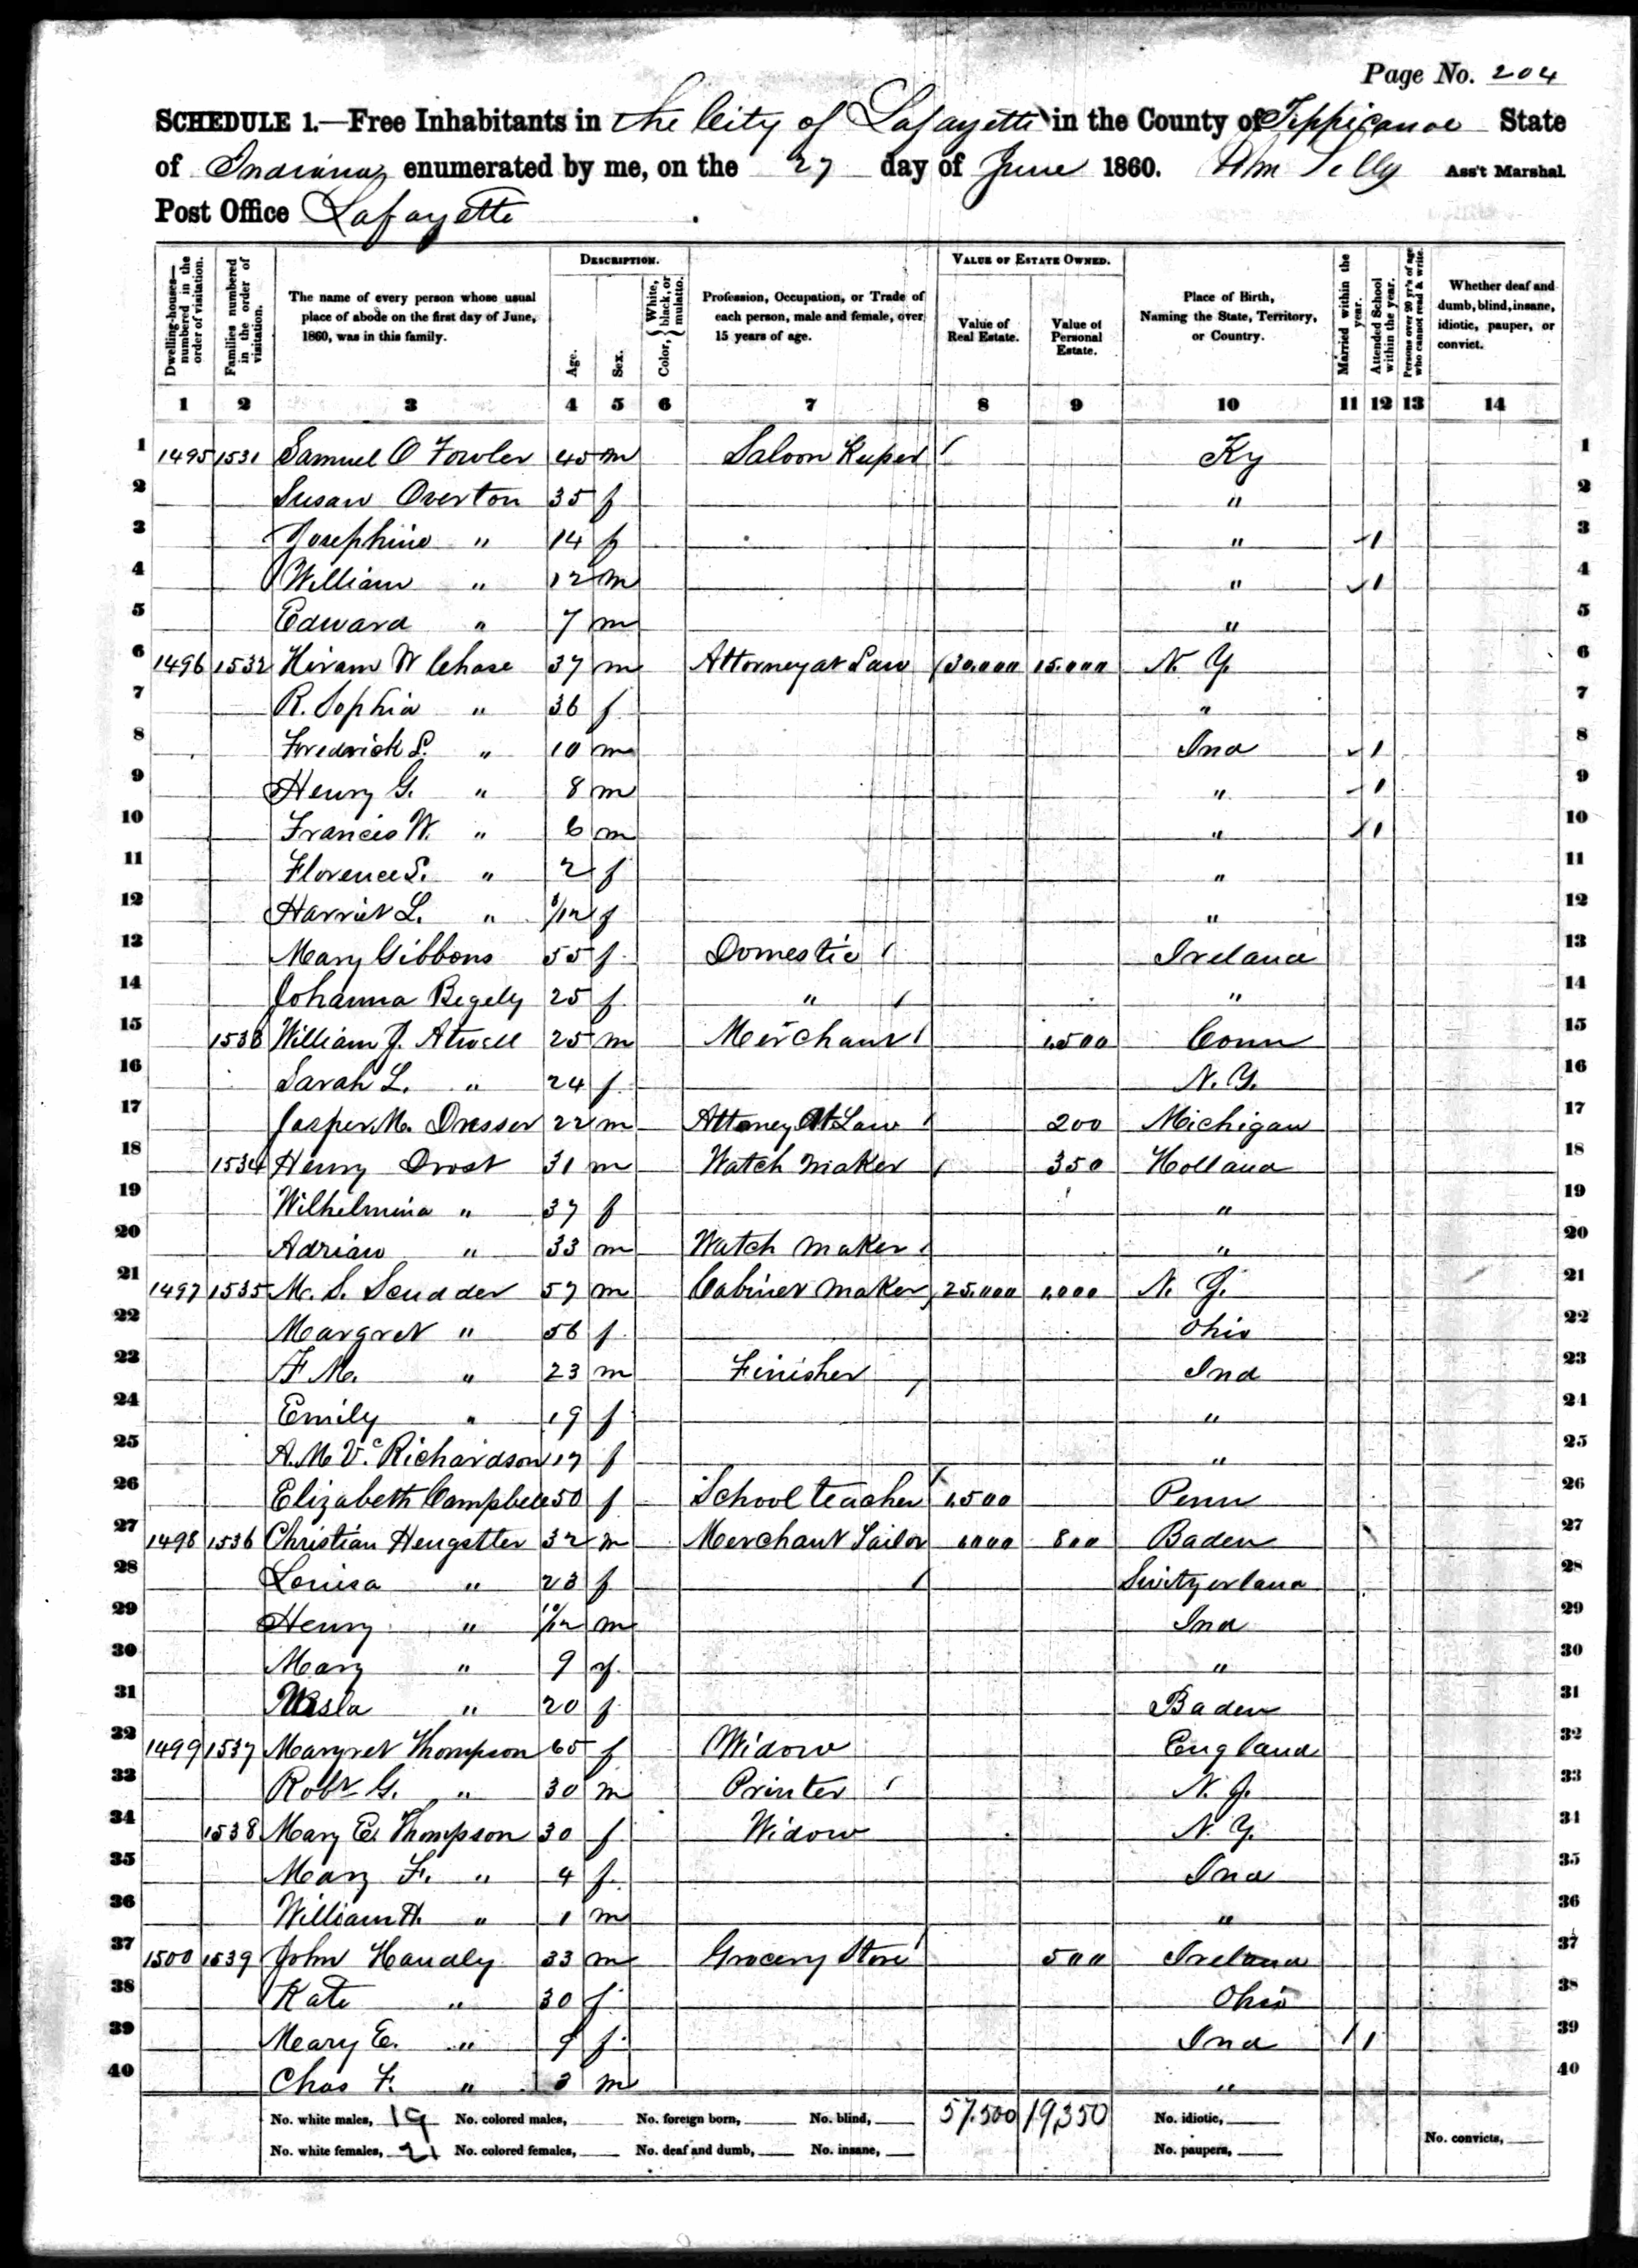 Page No. 204
SCHEDULE 1.—Free Inhabitants in the City of Lafayette in the County of Tippicanoe State
of Indiana enumerated by me, on the 27 day of June 1860. Ass't Marshal.
Post Office Lafayette
Dwelling-houses—numbered in the order of visitation.
Families numbered in the order of visitation.
The name of every person whose usual place of abode on the first day of June, 1860, was in this family.
DESCRIPTION.
Age.
Sex.
Color, { White, black, or mulatto.
Profession, Occupation, or Trade of each person, male and female, over 15 years of age.
VALUE OF ESTATE OWNED.
Value of Real Estate.
Value of Personal Estate.
Place of Birth, Naming the State, Territory, or Country.
Married within the year.
Attended School within the year.
Persons over 20 yr's of age who cannot read & write.
Whether deaf and dumb, blind, insane, idiotic, pauper, or convict.
1 2 3 4 5 6 7 8 9 10 11 12 13 14
1 1495 1531 Samuel O Fowler 45 m Saloon Keeper Ky 1
2 Susan Overton 35 f " 2
3 Josephine " 14 f " 1 3
4 William " 12 m " 1 4
5 Edward " 7 m " 5
6 1496 1532 Hiram W Chase 37 m Attorney at Law 30.000 15.000 N. Y. 6
7 R. Sophia " 36 f " 7
8 Fredrick S. " 10 m Ind 1 8
9 Henry G. " 8 m " 1 9
10 Francis W. " 6 m " 1 10
11 Florence S. " 2 f " 11
12 Harriet L. " /12 f " 12
13 Mary Gibbons 55 f Domestic Ireland 13
14 Johanna Begely 25 f " " 14
15 1533 William J. Atwell 25 m Merchant 1.500 Conn 15
16 Sarah L. " 24 f N. Y. 16
17 Jasper M. Dresser 22 m Attorney At Law 200 Michigan 17
18 1534 Henry Drost 31 m Watch maker 350 Holland 18
19 Wilhelmina " 37 f " 19
20 Adrian " 33 m Watch maker " 20
21 1497 1535 M. S. Scudder 57 m Cabinet maker 25.000 1.000 N. J. 21
22 Margret " 56 f Ohio 22
23 F M. " 23 m Finisher Ind 23
24 Emily " 19 f " 24
25 A. M. V.c Richardson 17 f " 25
26 Elizabeth Campbell 50 f School teacher 1.500 Penn 26
27 1498 1536 Christian Hengstler 32 m Merchant Tailor 1000 800 Baden 27
28 Louisa " 23 f Switzerland 28
29 Henry " 10/12 m Ind 29
30 Mary " 9 f " 30
31 " 20 f Baden 31
32 1499 1537 Margret Thompson 65 f Widow England 32
33 Robt G. " 30 m Printer N. J. 33
34 1538 Mary E. Thompson 30 f Widow N. Y. 34
35 Mary F. " 4 f Ind 35
36 William H. " 1 m " 36
37 1500 1539 John Handly 33 m Grocery Store 500 Ireland 37
38 Kate " 30 f Ohio 38
39 Meary E. " 9 f Ind 1 39
40 Chas F. " 3 m " 40
No. white males, 19 No. colored males, No. foreign born, No. blind, 57.500 19,350 No. idiotic,
No. white females, 21 No. colored females, No. deaf and dumb, No. insane, No. paupers, No. convicts,